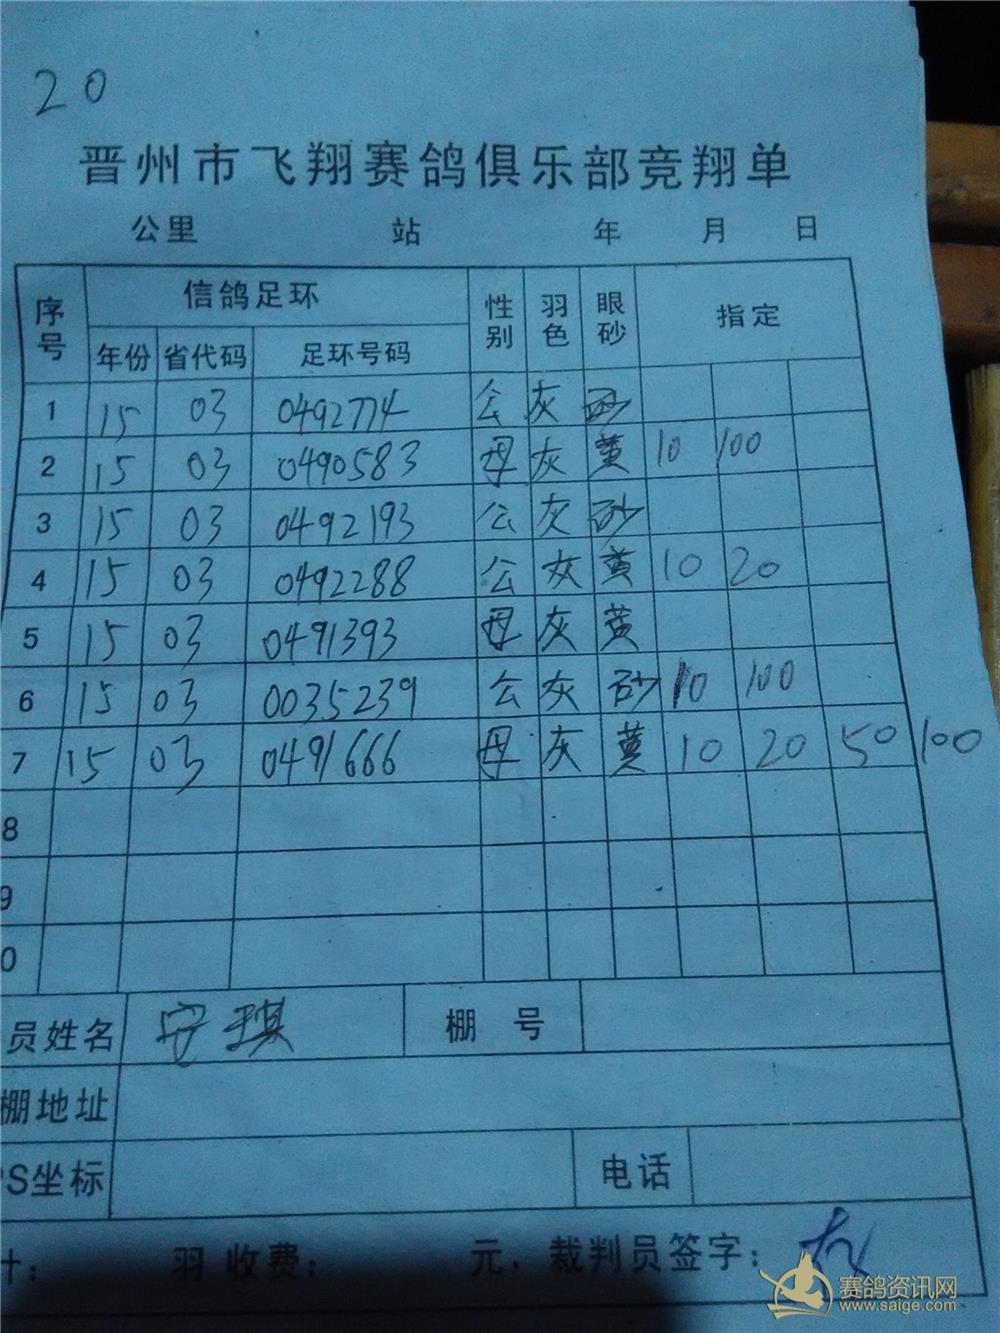 20
晋州市飞翔赛鸽俱乐部竞翔单
公里 站 年 月 日
序号 信鸽足环 性别 羽色 眼砂 指定
年份 省代码 足环号码
1 15 03 0492774 公 灰 砂
2 15 03 0490583 母 灰 黄 10 100
3 15 03 0492193 公 灰 砂
4 15 03 0492288 公 灰 黄 10 20
5 15 03 0491393 母 灰 黄
6 15 03 0035239 公 灰 砂 10 100
7 15 03 0491666 母 灰 黄 10 20 50 100
8
9
0
员姓名 安琪 棚 号
棚地址
PS坐标 电话
计： 羽 收费： 元，裁判员签字：
赛鸽资讯网
www.saige.com